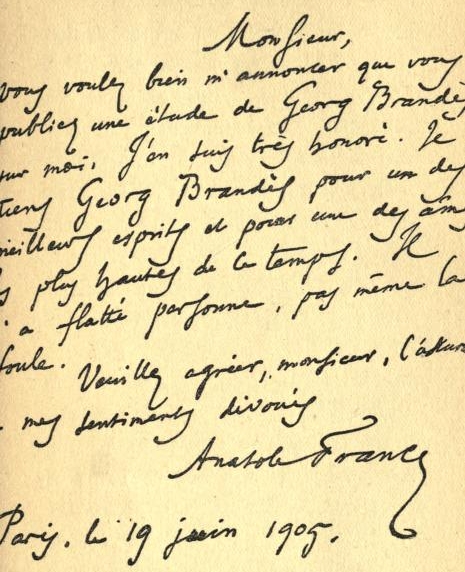 Monsieur,
vous voulez bien m'annoncer que vous
publiez une étude de Georg Brandès
sur moi. J'en suis très honoré. Je
tiens Georg Brandès pour un des
meilleurs esprits et pour une des âmes
s plus hautes de ce temps. Il
' a flatté personne, pas même la
foule.
Veuillez agréer, monsieur, l'assuran
mes sentiments dévoués
Anatole France
Paris, le 19 juin 1905.